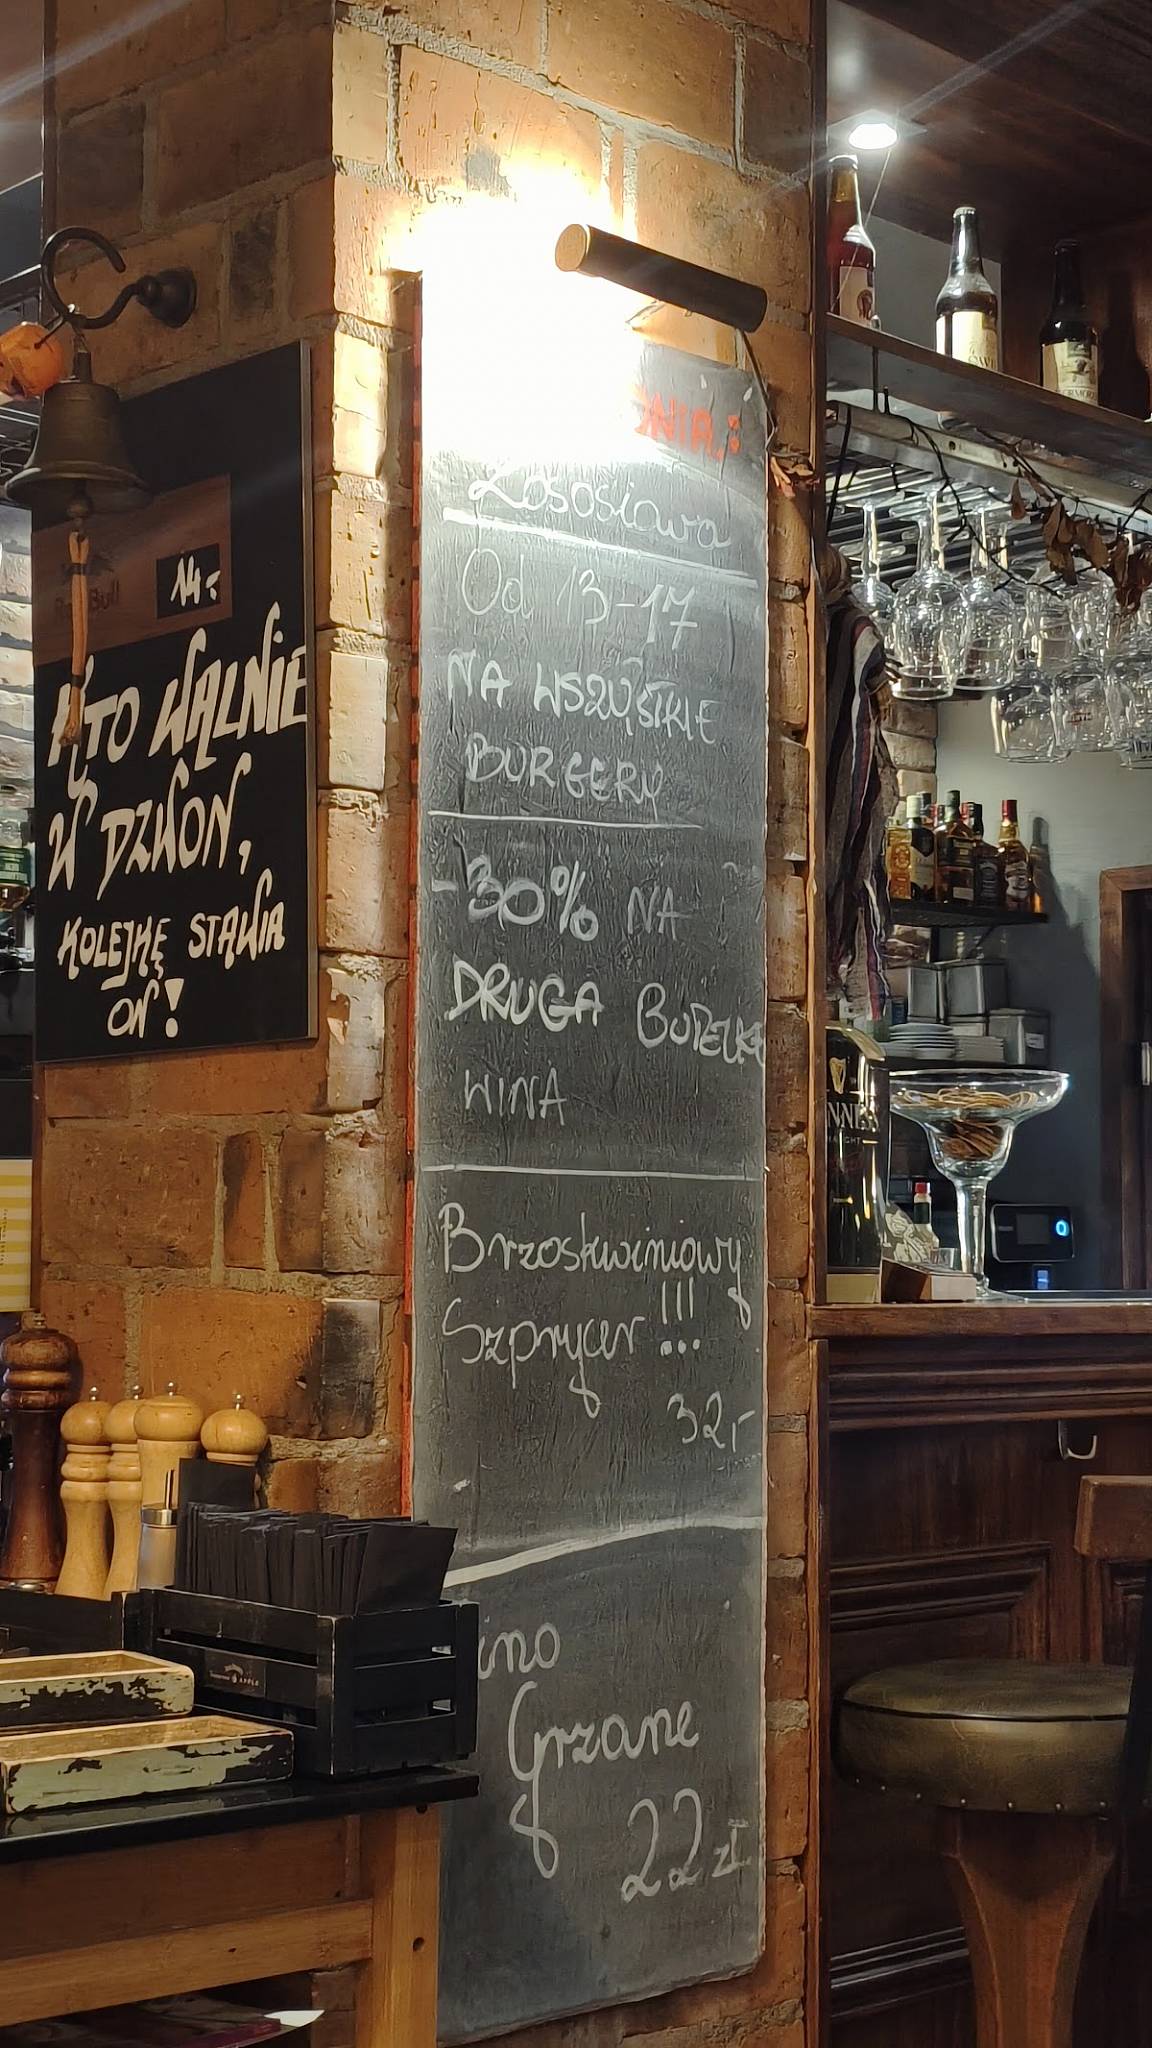 14:-
KTO WALNIE
W DZWON,
KOLEJKĘ STAWIA
ON!
DNIA:
Łososiowa
Od 13-17
NA WSZYSTKIE
BURGERY
-30% NA
DRUGĄ BUTELKĘ
WINA
Brzoskwiniowy
Szprycer !!!
32,-
ino
Grzane
22 zł